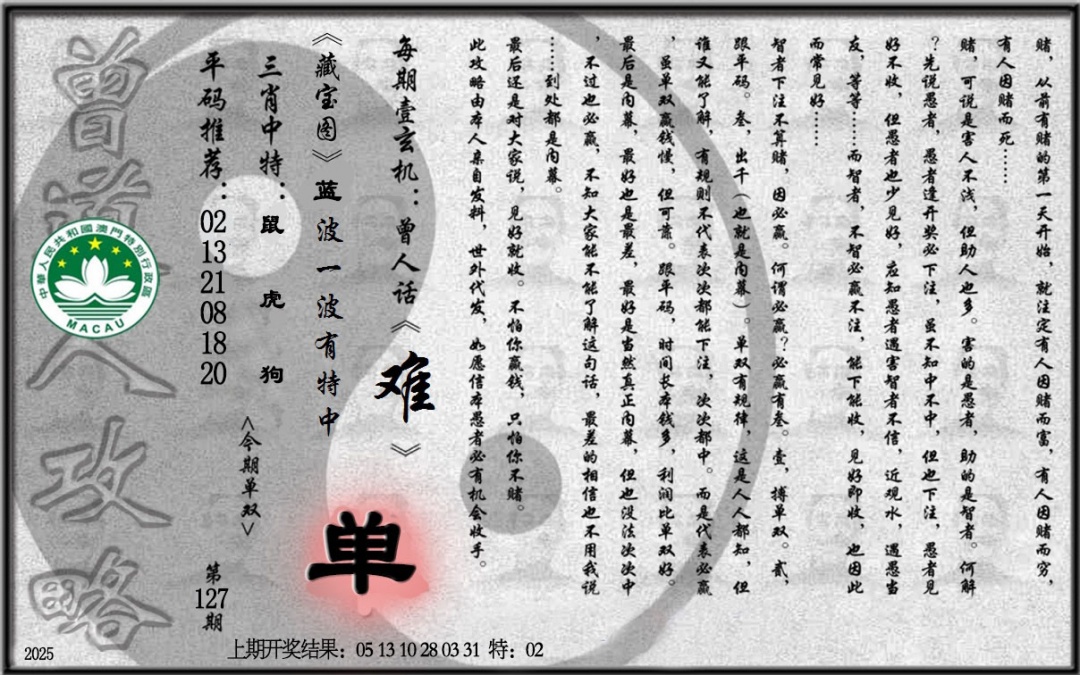 赌，从前有赌的第一天开始，就注定有人因赌而富，有人因赌而穷，
有人因赌而死……
赌，可说是害人不浅，但助人也多。害的是愚者，助的是智者。何解
？先说愚者，愚者逢开奖必下注，虽不知中不中，但也下注，愚者见
好不收，但愚者也少见好，应知愚者遇害智者不信，近观水，遇愚当
友，等等……而智者，不智必赢不注，能下能收，见好即收，也因此
而常见好……
智者下注不算赌，因必赢。何谓必赢？必赢有叁。壹，搏单双。贰，
跟平码。叁，出千（也就是内幕）。单双有规律，这是人人都知，但
谁又能了解，有规则不代表次次都能下注，次次都中。而是代表必赢
，虽单双赢钱慢，但可靠。跟平码，时间长本钱多，利润比单双好。
最后是内幕，最好也是最差，最好是当然真正内幕，但也没法次次中
，不过也必赢，不知大家能不能了解这句话，最差的相信也不用我说
……到处都是内幕。
最后还是对大家说，见好就收。不怕你赢钱，只怕你不赌。
此攻略由本人亲自发料，世外代发，如愿信本愚者必有机会收手。
每期壹玄机：曾人话《难》
《藏宝图》蓝波一波有特中
三肖中特：鼠 虎 狗
平码推荐：02 13 21 08 18 20
<今期单双>
单
第127期
曾道人攻略
中華人民共和國澳門特別行政區
MACAU
2025
上期开奖结果：05 13 10 28 03 31 特：02